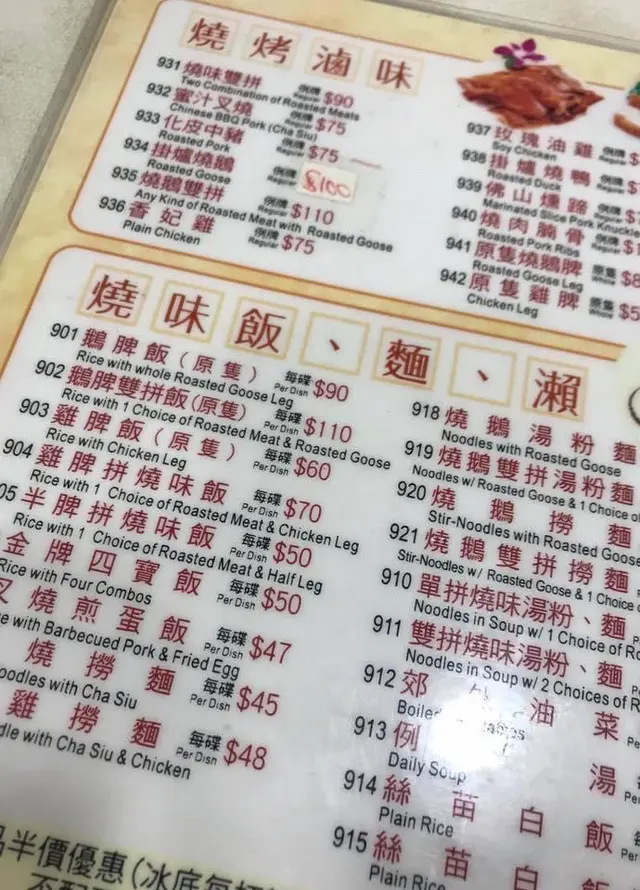 燒烤滷味
931 燒味雙拼 例牌 Regular $90
Two Combination of Roasted Meats
932 蜜汁叉燒 例牌 Regular $75
Chinese BBQ Pork (Cha Siu)
933 化皮中豬 例牌 Regular $75
Roasted Pork
934 掛爐燒鵝 例牌 Regular $100
Roasted Goose
935 燒鵝雙拼 例牌 Regular $110
Any Kind of Roasted Meat with Roasted Goose
936 香妃雞 例牌 Regular $75
Plain Chicken
937 玫瑰油雞 例牌 Regular
Soy Chicken
938 掛爐燒鴨 例牌 Regular
Roasted Duck
939 佛山燻蹄 例牌 Regular
Marinated Slice Pork Knuckle
940 燒肉腩骨 例牌 Regular
Roasted Pork Ribs
941 原隻燒鵝脾 原隻 Whole
Roasted Goose Leg
942 原隻雞脾 原隻 Whole
Chicken Leg
燒味飯、麵、瀨
901 鵝脾飯(原隻) 每碟 Per Dish $90
Rice with whole Roasted Goose Leg
902 鵝脾雙拼飯(原隻) 每碟 Per Dish $110
Rice with 1 Choice of Roasted Meat & Roasted Goose
903 雞脾飯(原隻) 每碟 Per Dish $60
Rice with Chicken Leg
904 雞脾拼燒味飯 每碟 Per Dish $70
Rice with 1 Choice of Roasted Meat & Chicken Leg
05 半脾拼燒味飯 每碟 Per Dish $50
Rice with 1 Choice of Roasted Meat & Half Leg
金牌四寶飯 每碟 Per Dish $50
Rice with Four Combos
叉燒煎蛋飯 每碟 Per Dish $47
with Barbecued Pork & Fried Egg
燒撈麵 每碟 Per Dish $45
with Cha Siu
雞撈麵 每碟 Per Dish $48
with Cha Siu & Chicken
918 燒鵝湯粉麵
Noodles with Roasted Goose
919 燒鵝雙拼湯粉麵
Noodles w/ Roasted Goose & 1 Choice of
920 燒鵝撈麵
Stir-Noodles with Roasted Goose
921 燒鵝雙拼撈麵
Stir-Noodles w/ Roasted Goose & 1 Choice
910 單拼燒味湯粉、麵
Noodles in Soup w/ 1 Choice of
911 雙拼燒味湯粉、麵
Noodles in Soup w/ 2 Choices of
912 郊外油菜
Boiled
913 例湯
Daily Soup
914 絲苗白飯
Plain Rice
915 絲苗白飯
Plain Rice
半價優惠